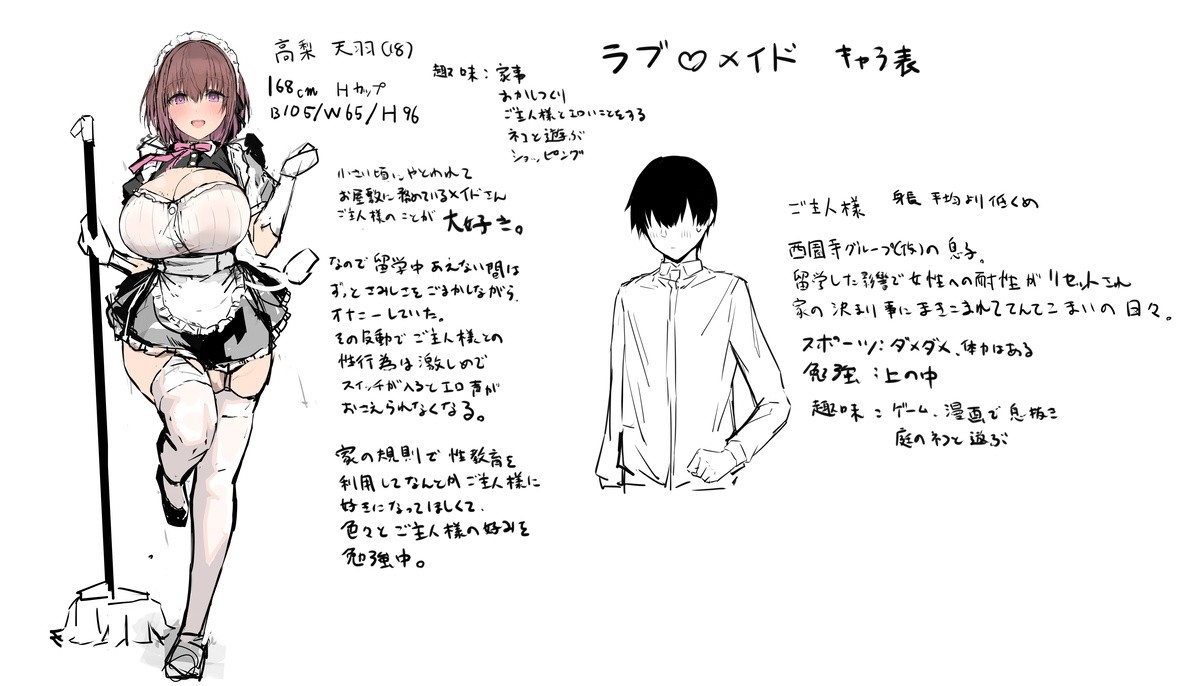 ラブ♡メイド キャラ表
高梨 天羽(18)
168cm Hカップ
B105/W65/H96
趣味：家事
おかしつくり
ご主人様とエロいことをする
ネコと遊ぶ
ショッピング
小さい頃にやとわれて
お屋敷に務めているメイドさん
ご主人様のことが 大好き。
なので留学中あえない間は
ずっとさみしさをごまかしながら
オナニーしていた。
その反動でご主人様との
性行為は激しめで
スイッチが入るとエロ声が
おさえられなくなる。
家の規則で性教育を
利用してなんとかご主人様に
好きになってほしくて、
色々とご主人様の好みを
勉強中。
ご主人様 身長 平均より低くめ
西園寺グループ(仮)の息子。
留学した影響で女性への耐性がリセットされ
家の決まり事にまきこまれててんてこまいの日々。
スポーツ：ダメダメ、体力はある
勉強：上の中
趣味：ゲーム、漫画で息抜き
庭のネコと遊ぶ